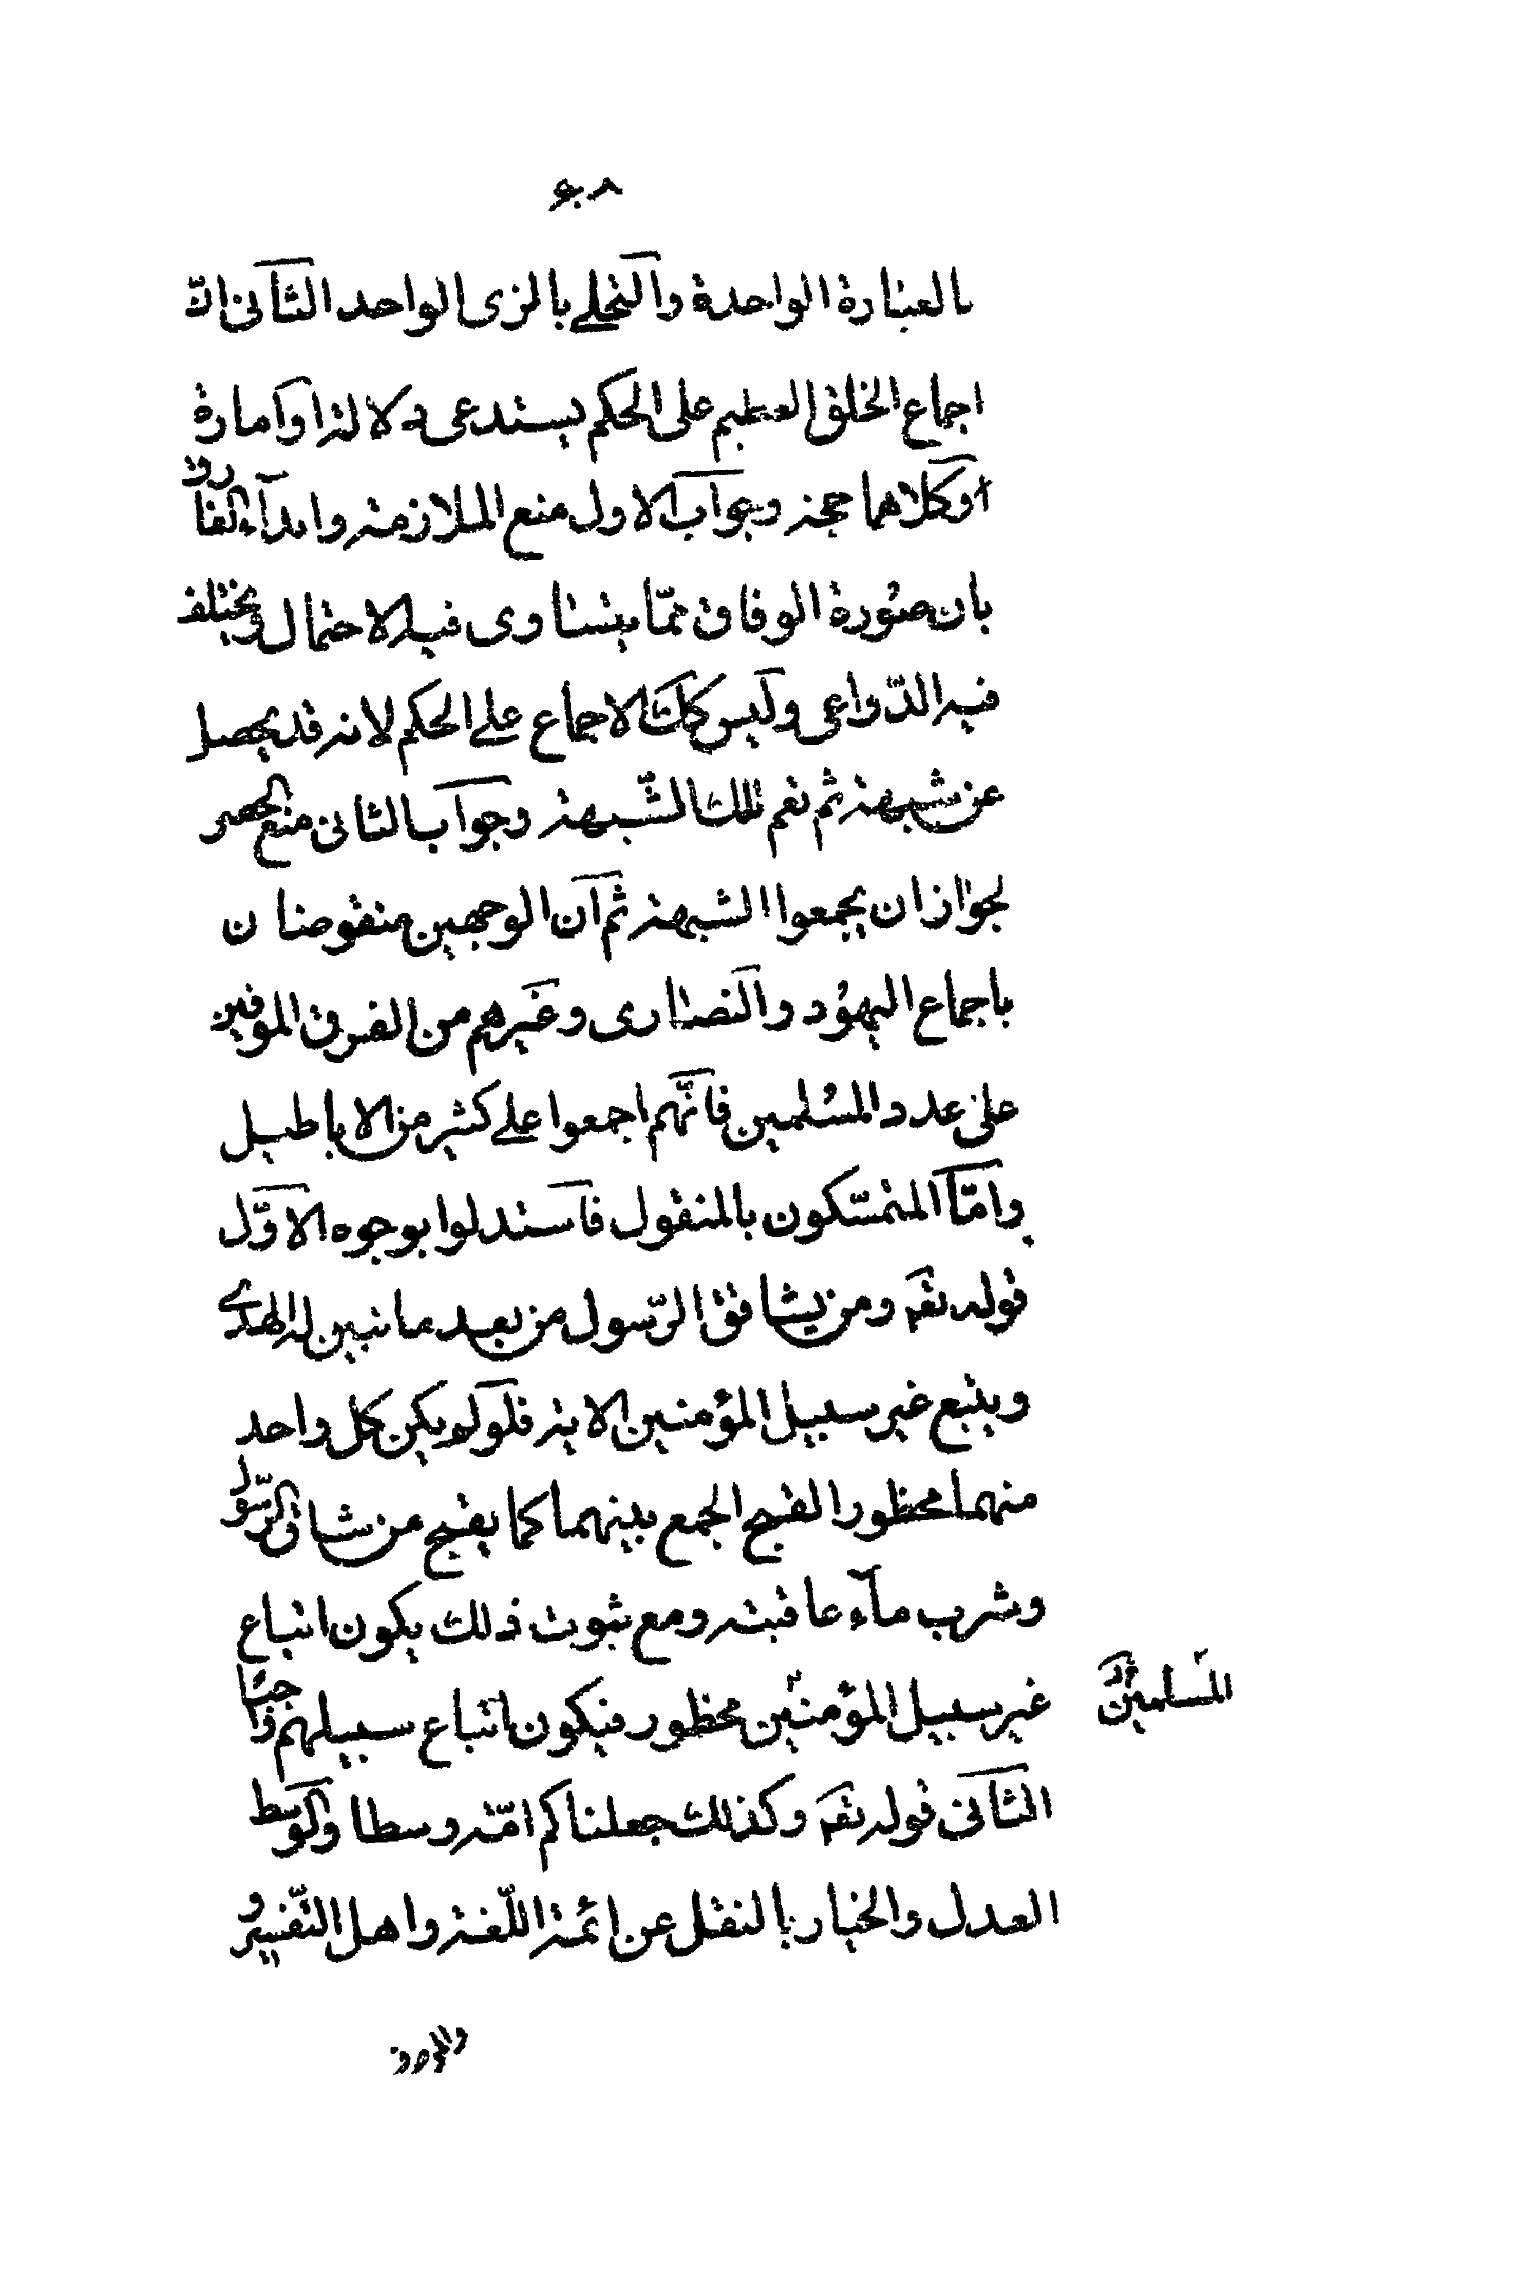 بالعبارة الواحدة والتحلي بالزى الواحد الثانى ان
اجماع الخلق العظيم على الحكم يستدعى دلالة او امارة
او كلاهما حجة وجواب الاول منع الملازمة وابداء الفارق
بان صورة الوفاق ممّا يتساوى فيه الاحتمال ويختلف
فيه الدّواعى وليس كك الاجماع على الحكم لانه قد يحصل
عن شبهة ثم نعم تلك الشّبهة وجواب الثانى منع الحصر
لجواز ان يجمعوا الشبهة ثم ان الوجهين منقوضان
باجماع اليهود والنصارى وغيرهم من الفرق الموفين
على عدد المسلمين فانّهم اجمعوا على كثير من الاباطيل
وامّا المتمسّكون بالمنقول فاستدلوا بوجوه الاوّل
قوله تعه ومن يشاقق الرّسول من بعد ما تبين له الهدى
ويتبع غير سبيل المؤمنين الاية فلو لم يكن كل واحد
منهما محظورا لقبح الجمع بينهما كما يقبح من شاق الرّسول
وشرب ماء عاقبته ومع ثبوت ذلك يكون اتباع
غير سبيل المؤمنين محظور فيكون اتباع سبيلهم واجبا
المسلمين
الثانى قوله تعه وكذلك جعلناكم امّة وسطا والوسط
العدل والخيار بالنقل عن ائمة اللّغة واهل التّفسير و